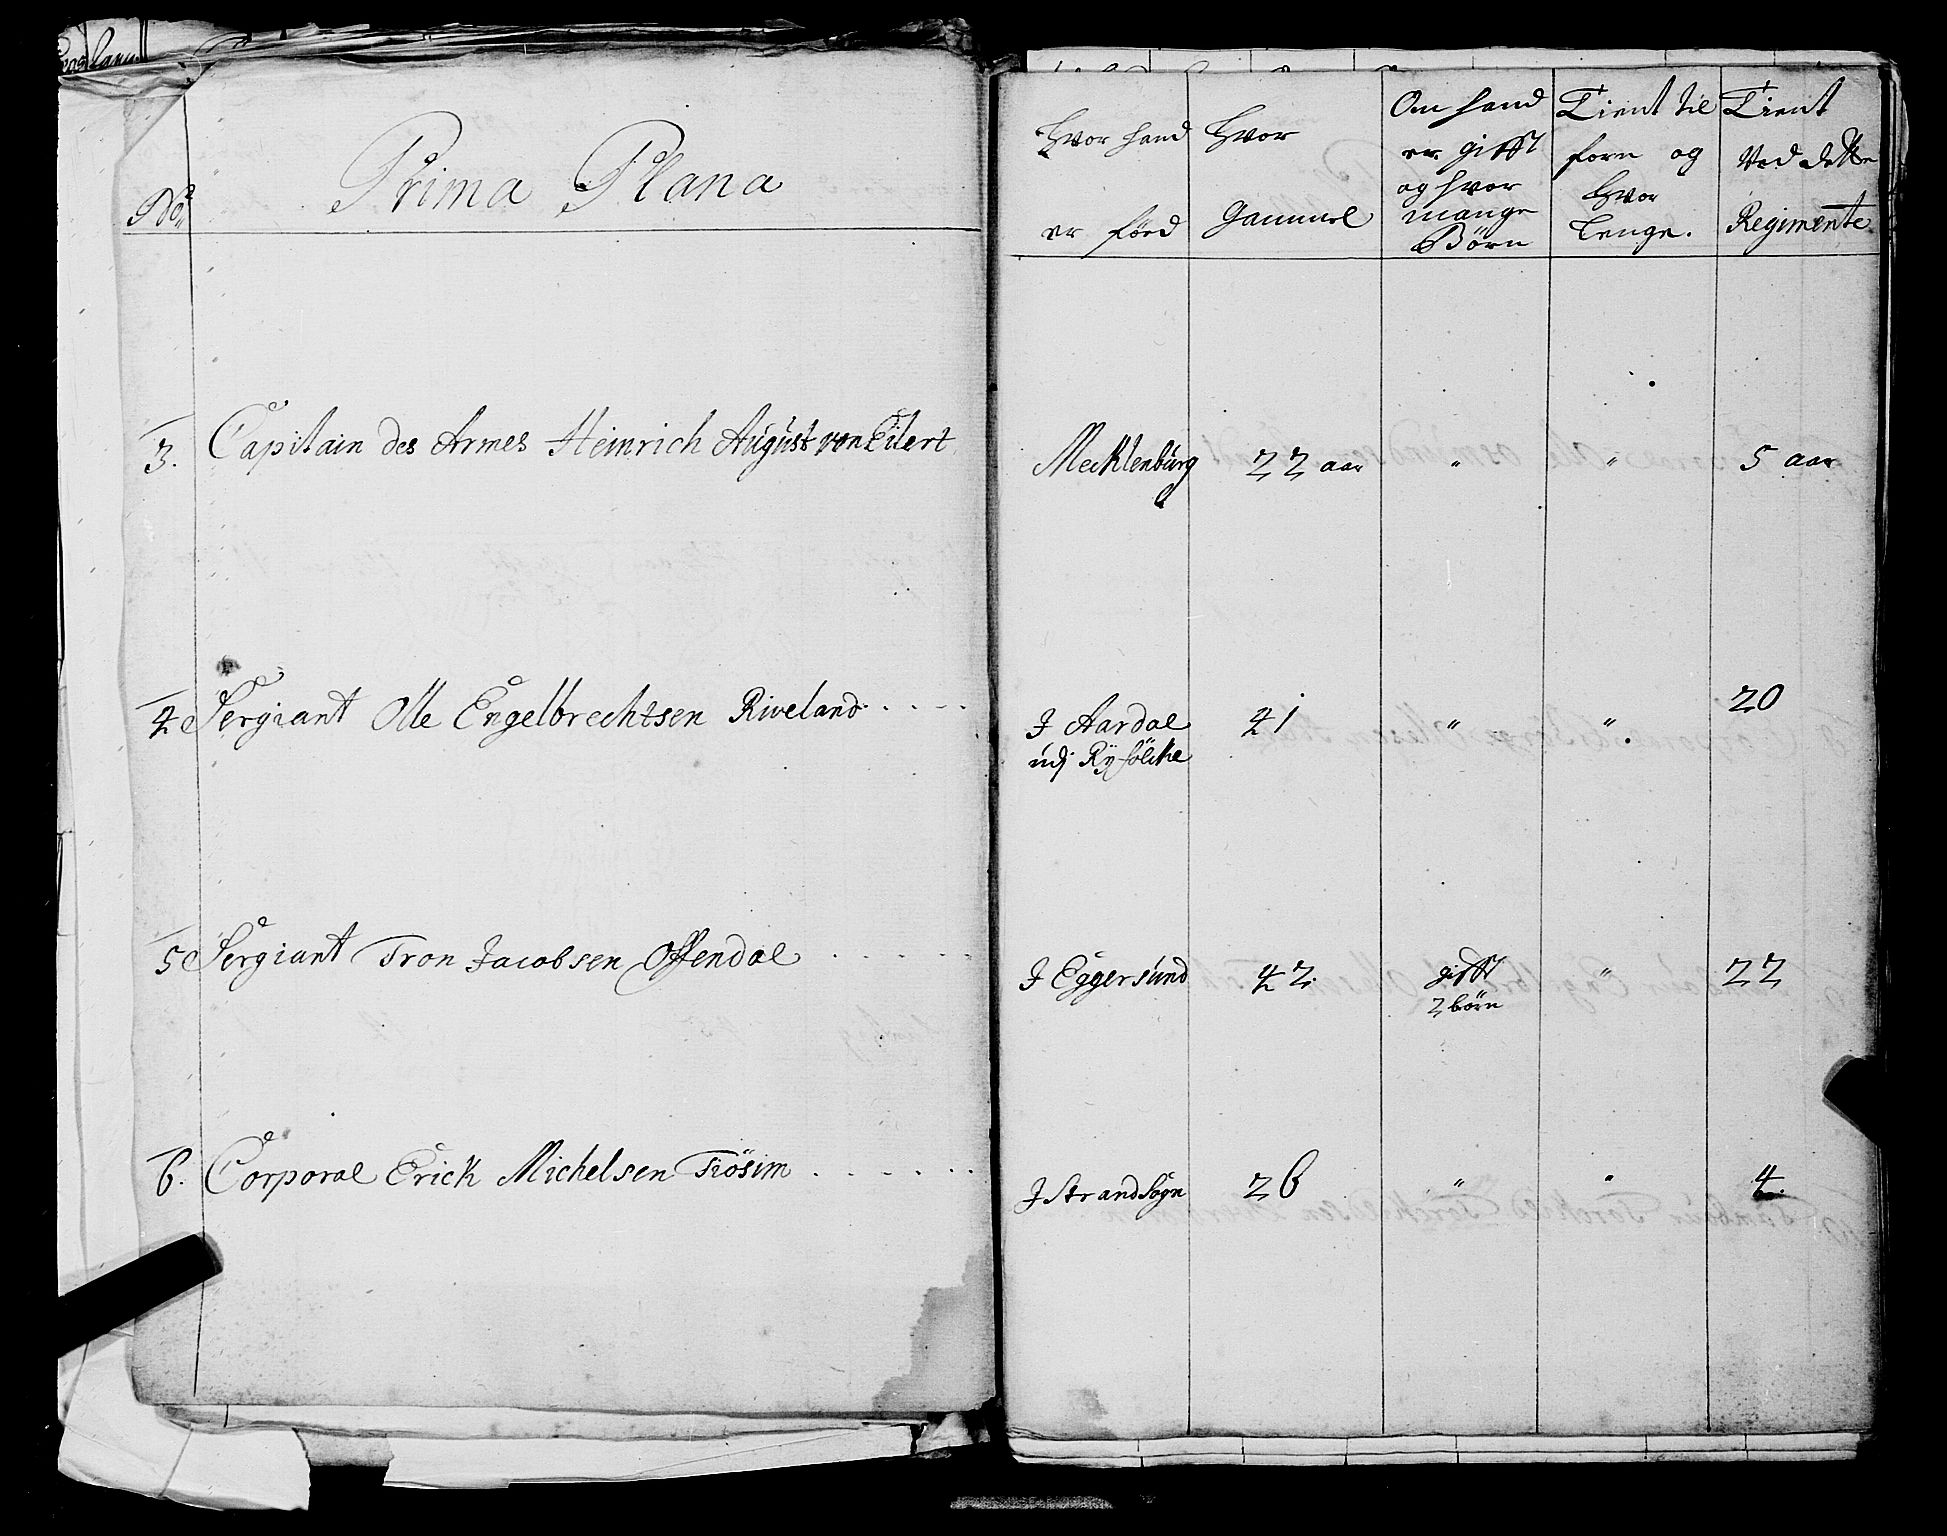 No:
Prima Plana
3. Capitain des Armes Heinrich August von Eilert
4 Sergiant Olle Engelbrechtsen Riveland
5 Sergiant Tron Jacobsen Offendal
6. Corporal Erick Michelsen Tiösim
Hvor hand
er föed
Hvor
Gammel
Om hand
er gifft
og hvor
mange
Börn
Tient til
forn og
hvor
Lenge.
Tient
Ved dette
Regimente
Mecklenburg 22 aar " " 5 aar
J Aardal 41 " " 20
udj Ryfölcke
J Eggersund 42. gifft " 22
2 börn
J Strand Sogn 26 " " 4.